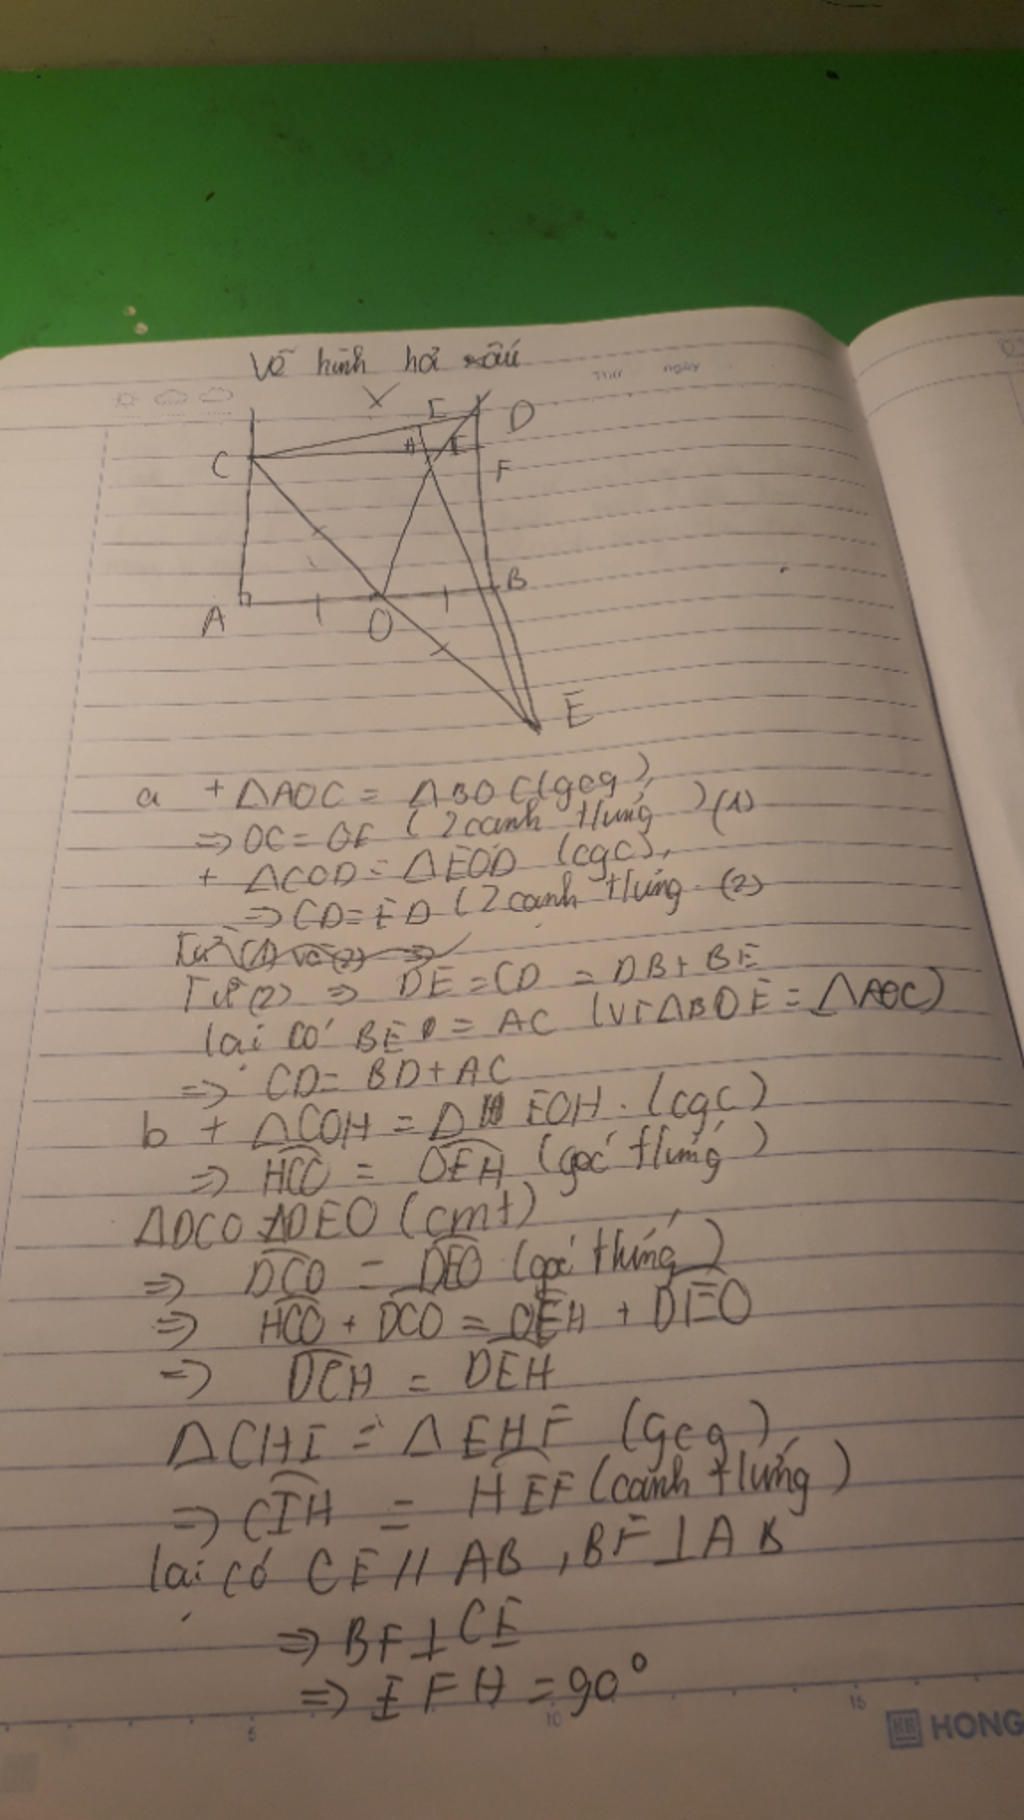 Vẽ hình hơi xấu
THỨ NGÀY
X
I
D
C
H
F
B
A
O
E
a + ΔAOC = ΔBOC (gcg)
=> OC = OE (2 cạnh t/ứng) (1)
+ ΔCOD = ΔEOD (cgc),
=> CD = ED (2 cạnh t/ứng. (2)
Từ (2) => DE = CD = DB + BE
lại có BE = AC (vì ΔBOE = ΔAOC)
=> CD = BD + AC
b + ΔCOH = Δ EOH. (cgc)
=> HCO = OEH (góc t/ứng)
ΔDCO = ΔDEO (cmt)
=> DCO = DEO (góc t/ứng)
=> HCO + DCO = OEH + DEO
=> DCH = DEH
ΔCHI = ΔEHF (gcg)
=> CIH = HEF (cạnh t/ứng)
lại có CF // AB, BF ⊥ AB
=> BF ⊥ CF
=> IFH = 90°
5 10 15
HONG